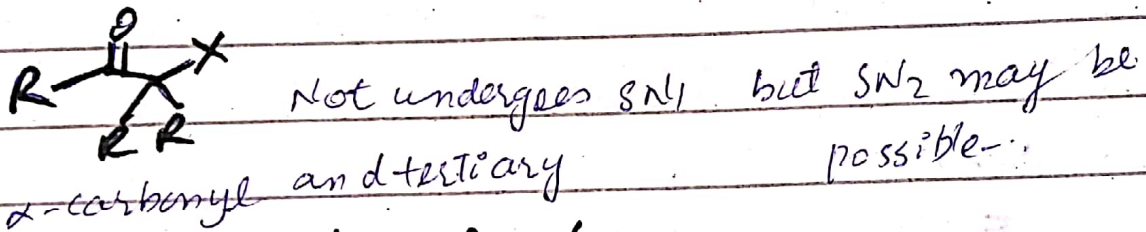 O
R X
R R
Not undergoes SN1 but SN2 may be
possible-..
α-carbonyl and tertiary